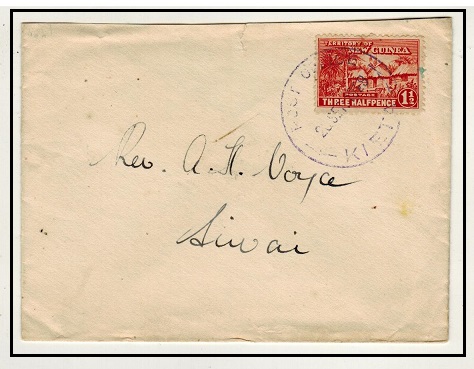 TERRITORY OF
NEW GUINEA
POSTAGE
THREE HALFPENCE 1½
Rev. A. H. Voyce
Siwai